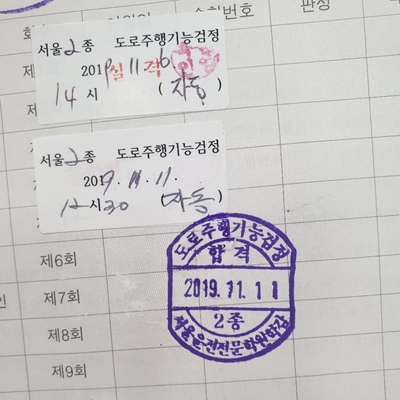 수험번호
판정
서울 2종 도로주행기능검정
2019. 11. 6.
실격
14시 (자동)
서울 2종 도로주행기능검정
2019. 11. 11.
12시 30 (자동)
제6회
제7회
제8회
제9회
도로주행기능검정
합격
2019. 11. 11
2종
서울운전전문학원학감